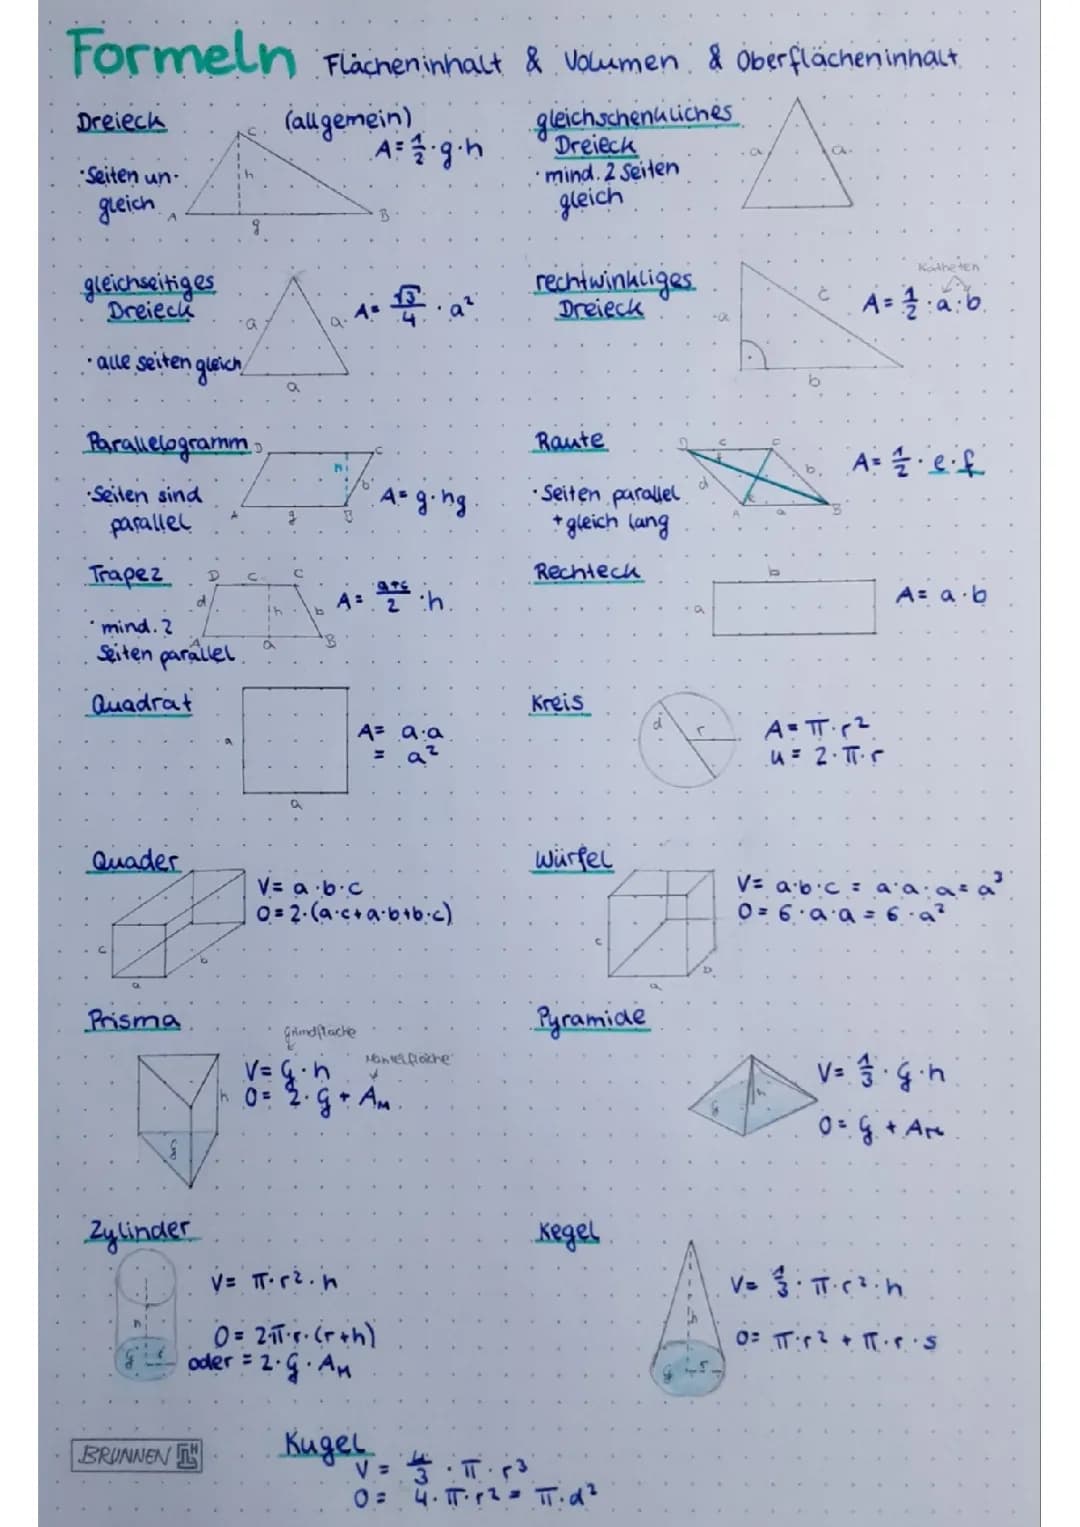 Formeln Flächeninhalt & Volumen & Oberflächeninhalt
Dreieck (allgemein)
A = 1/2 · g · h
· Seiten un-
gleich
A B C h g
gleichschenkliches
Dreieck
· mind. 2 Seiten
gleich
a a
gleichseitiges
Dreieck
A = √3/4 · a²
· alle seiten gleich
a a a
rechtwinkliges
Dreieck
Katheten
A = 1/2 · a · b
a b c
Parallelogramm
· Seiten sind
parallel
A = g · hg
D C A B h b g
Raute
· Seiten parallel
+ gleich lang
A = 1/2 · e · f
D c C d b f e A a B
Trapez
· mind. 2
Seiten parallel
A = a+c/2 · h
D c C d h b A a B
Rechteck
A = a · b
b
a
Quadrat
A = a · a
= a²
a
a
Kreis
A = π · r²
u = 2 · π · r
d r
Quader
V = a · b · c
O = 2 · (a · c + a · b + b · c)
c b a
Würfel
V = a · b · c = a · a · a = a³
O = 6 · a · a = 6 · a²
c b a
Prisma
Grundfläche
Mantelfläche
V = G · h
O = 2 · G + AM
h G
Pyramide
V = 1/3 · G · h
O = G + AM
G h
Zylinder
V = π · r² · h
O = 2 · π · r · (r + h)
oder = 2 · G · AM
h G r
Kegel
V = 1/3 · π · r² · h
O = π · r² + π · r · s
h G r
BRUNNEN
Kugel
V = 4/3 · π · r³
O = 4 · π · r² = π · d²